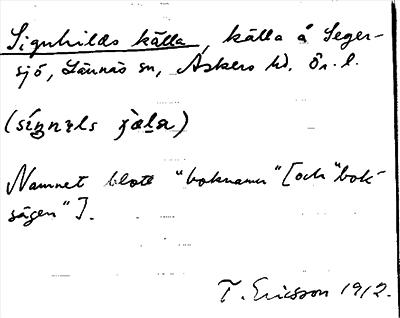 Signhilds källa, källa å Seger-
sjö, Lännäs sn, Askers hd. Ör. l.
(síŋnɩls ɟàḷa)
Namnet blott "boknamn" [och "bok-
sägen"].
T. Ericsson 1912.